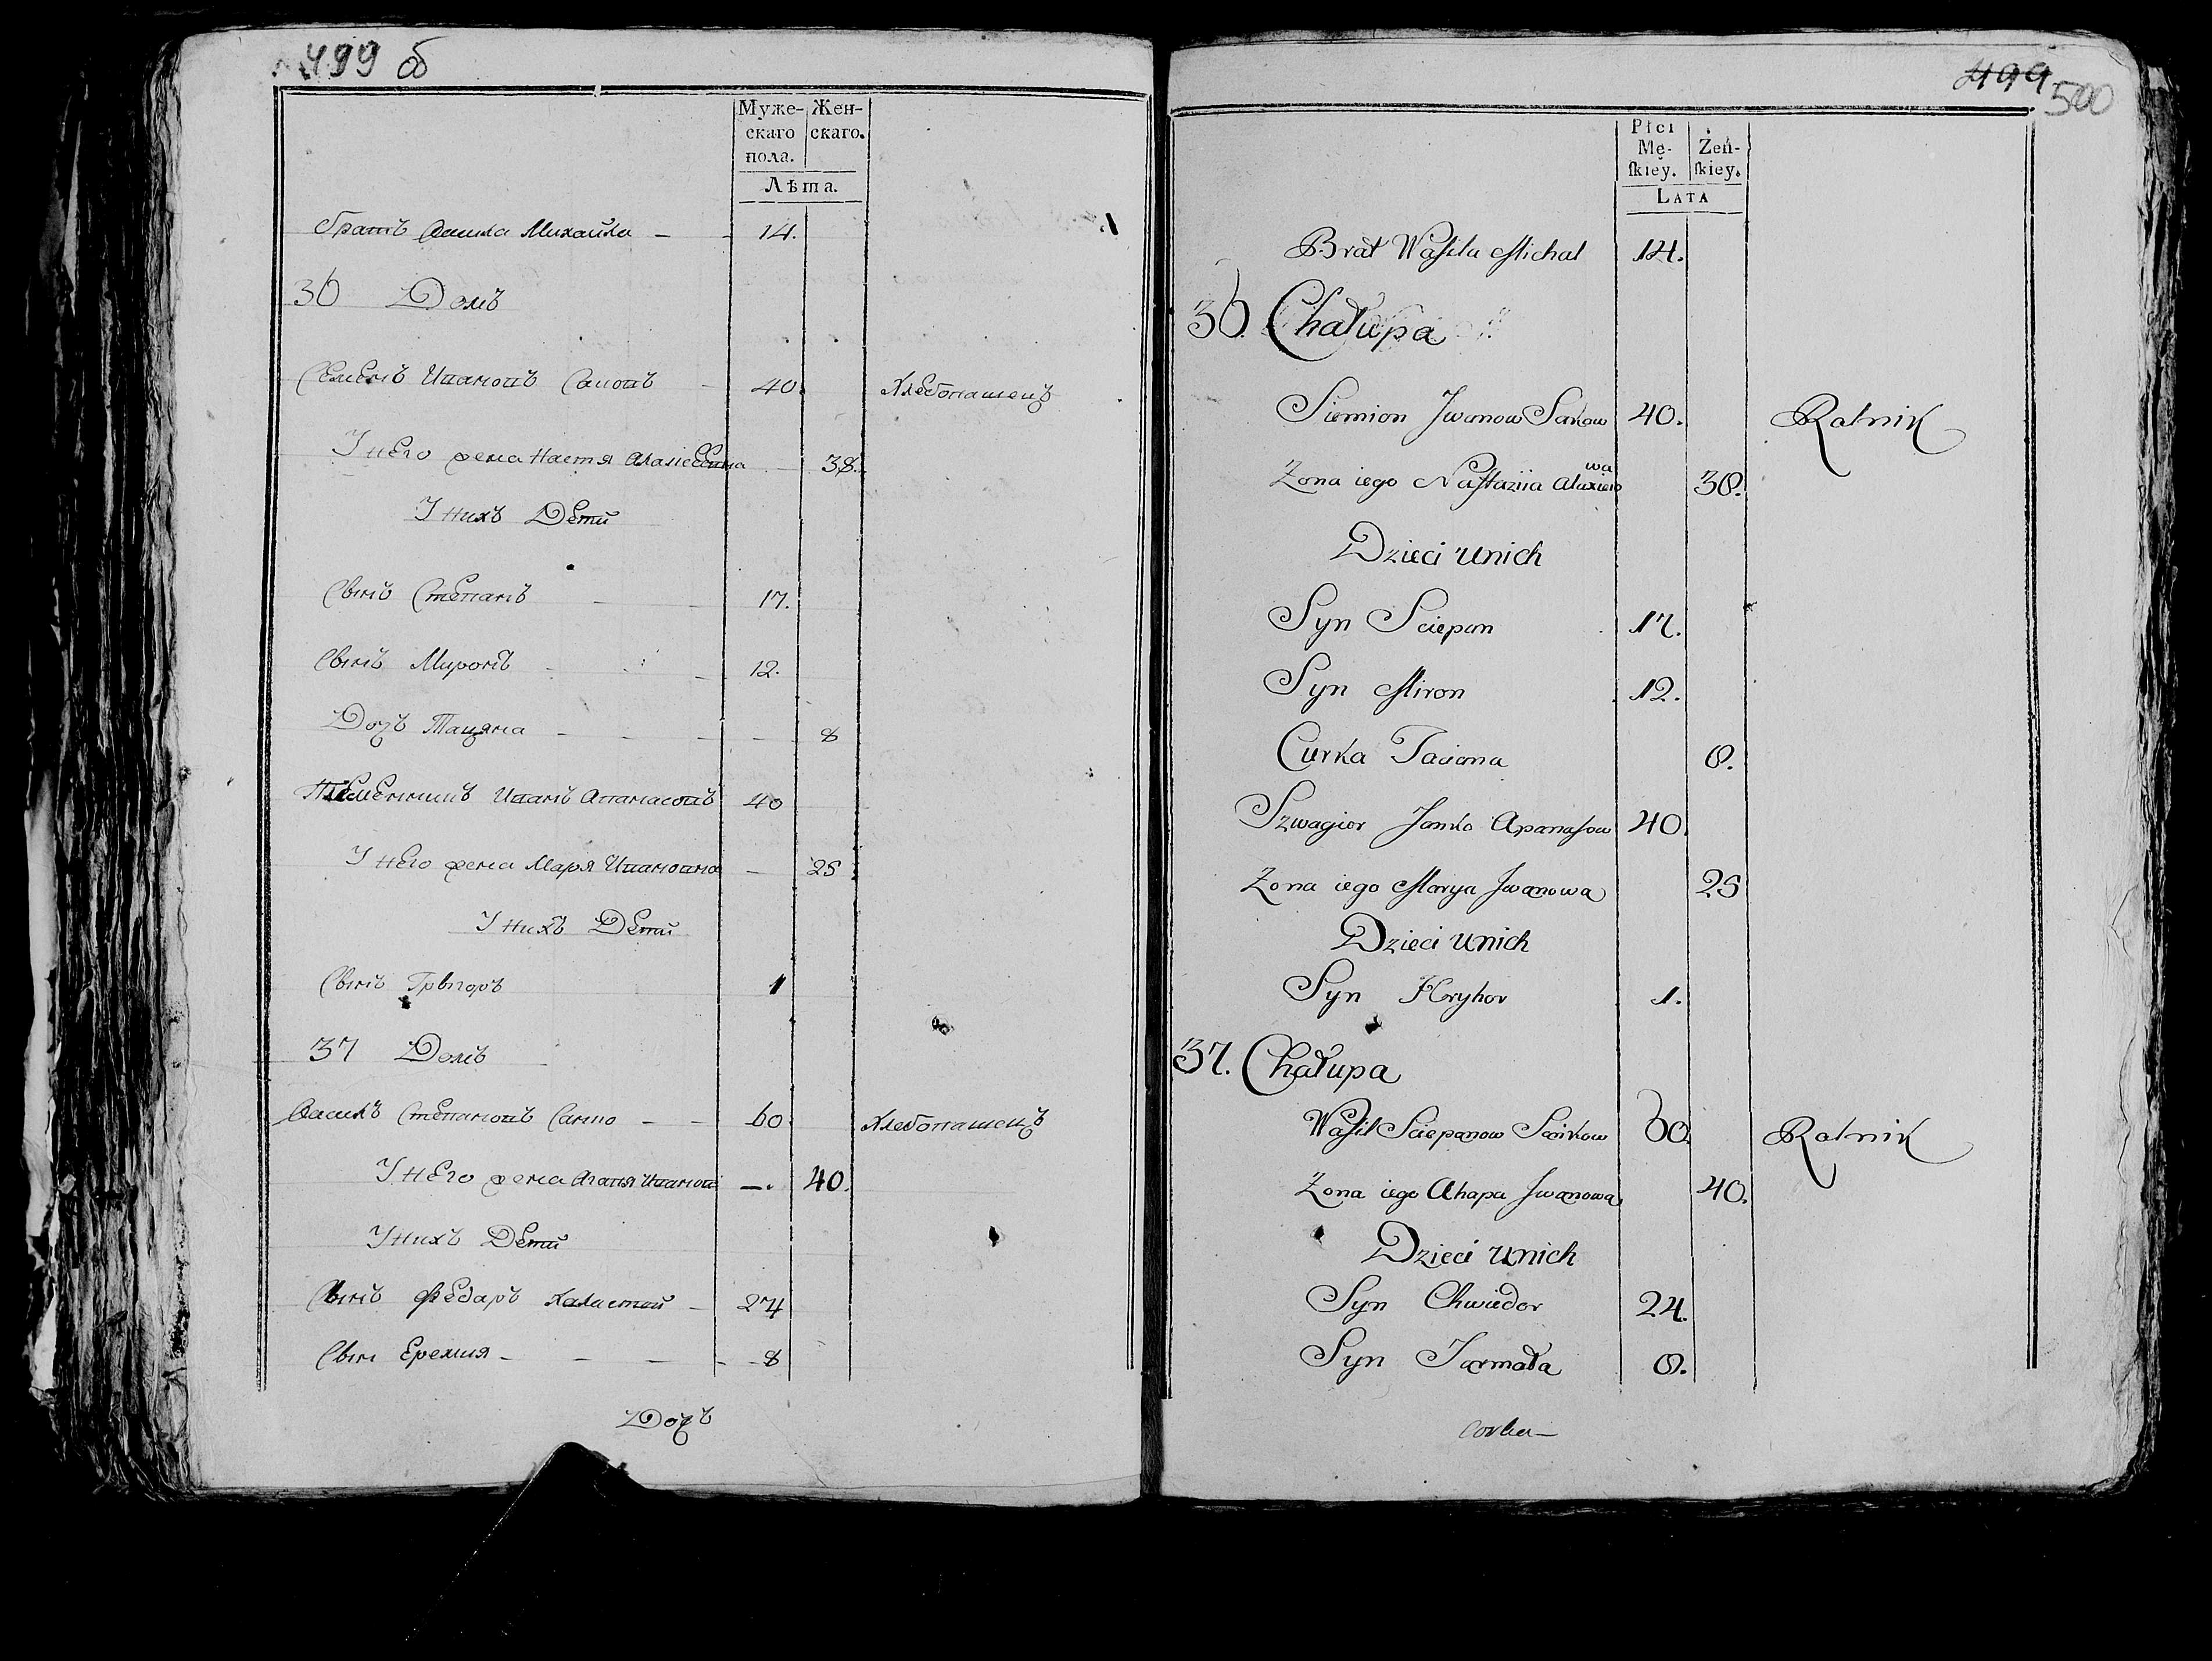 499 об
Муже-
скаго
пола.
Жен-
скаго.
Лѣта.
братъ Васила Михайла — 14.
36 Домъ
Семенъ Ивановъ 40. Хлебопашецъ
У него жена Настя 38.
У нихъ Дети
Сынъ Степанъ 17.
Сынъ Миронъ 12.
Дочь Тацяна 8
Племенникъ Иванъ Апанасовъ 40
У него жена Маря Ивановна 25
У нихъ Дети
Сынъ Грыгоръ 1
37 Домъ
Василь Степановъ 60 Хлебопашецъ
У него жена Агапя Иванов 40.
У нихъ Дети
Сынъ Федаръ Халастой 24
Сын Еремия 8
Дочь
499 500
Płci
Mę-
skiey.
Żeń-
skiey.
LATA
Brat Wasila Michal 14.
36. Chałupa
Siemion Jwanow Sakow 40. Ratnik
Zona iego Nastaziia Alaxieiowa 38.
Dzieci unich
Syn Sciepan 17.
Syn Miron 12.
Curka Taciana 8.
Szwagier Janko Apanasow 40.
Zona iego Marya Jwanowa 25
Dzieci unich
Syn Hryhor 1.
37. Chałupa
Wasil Sciepanow 60. Ratnik
Zona iego Ahapa Jwanowa 40.
Dzieci unich
Syn Chwiedor 24.
Syn Jarmała 8.
Corka —